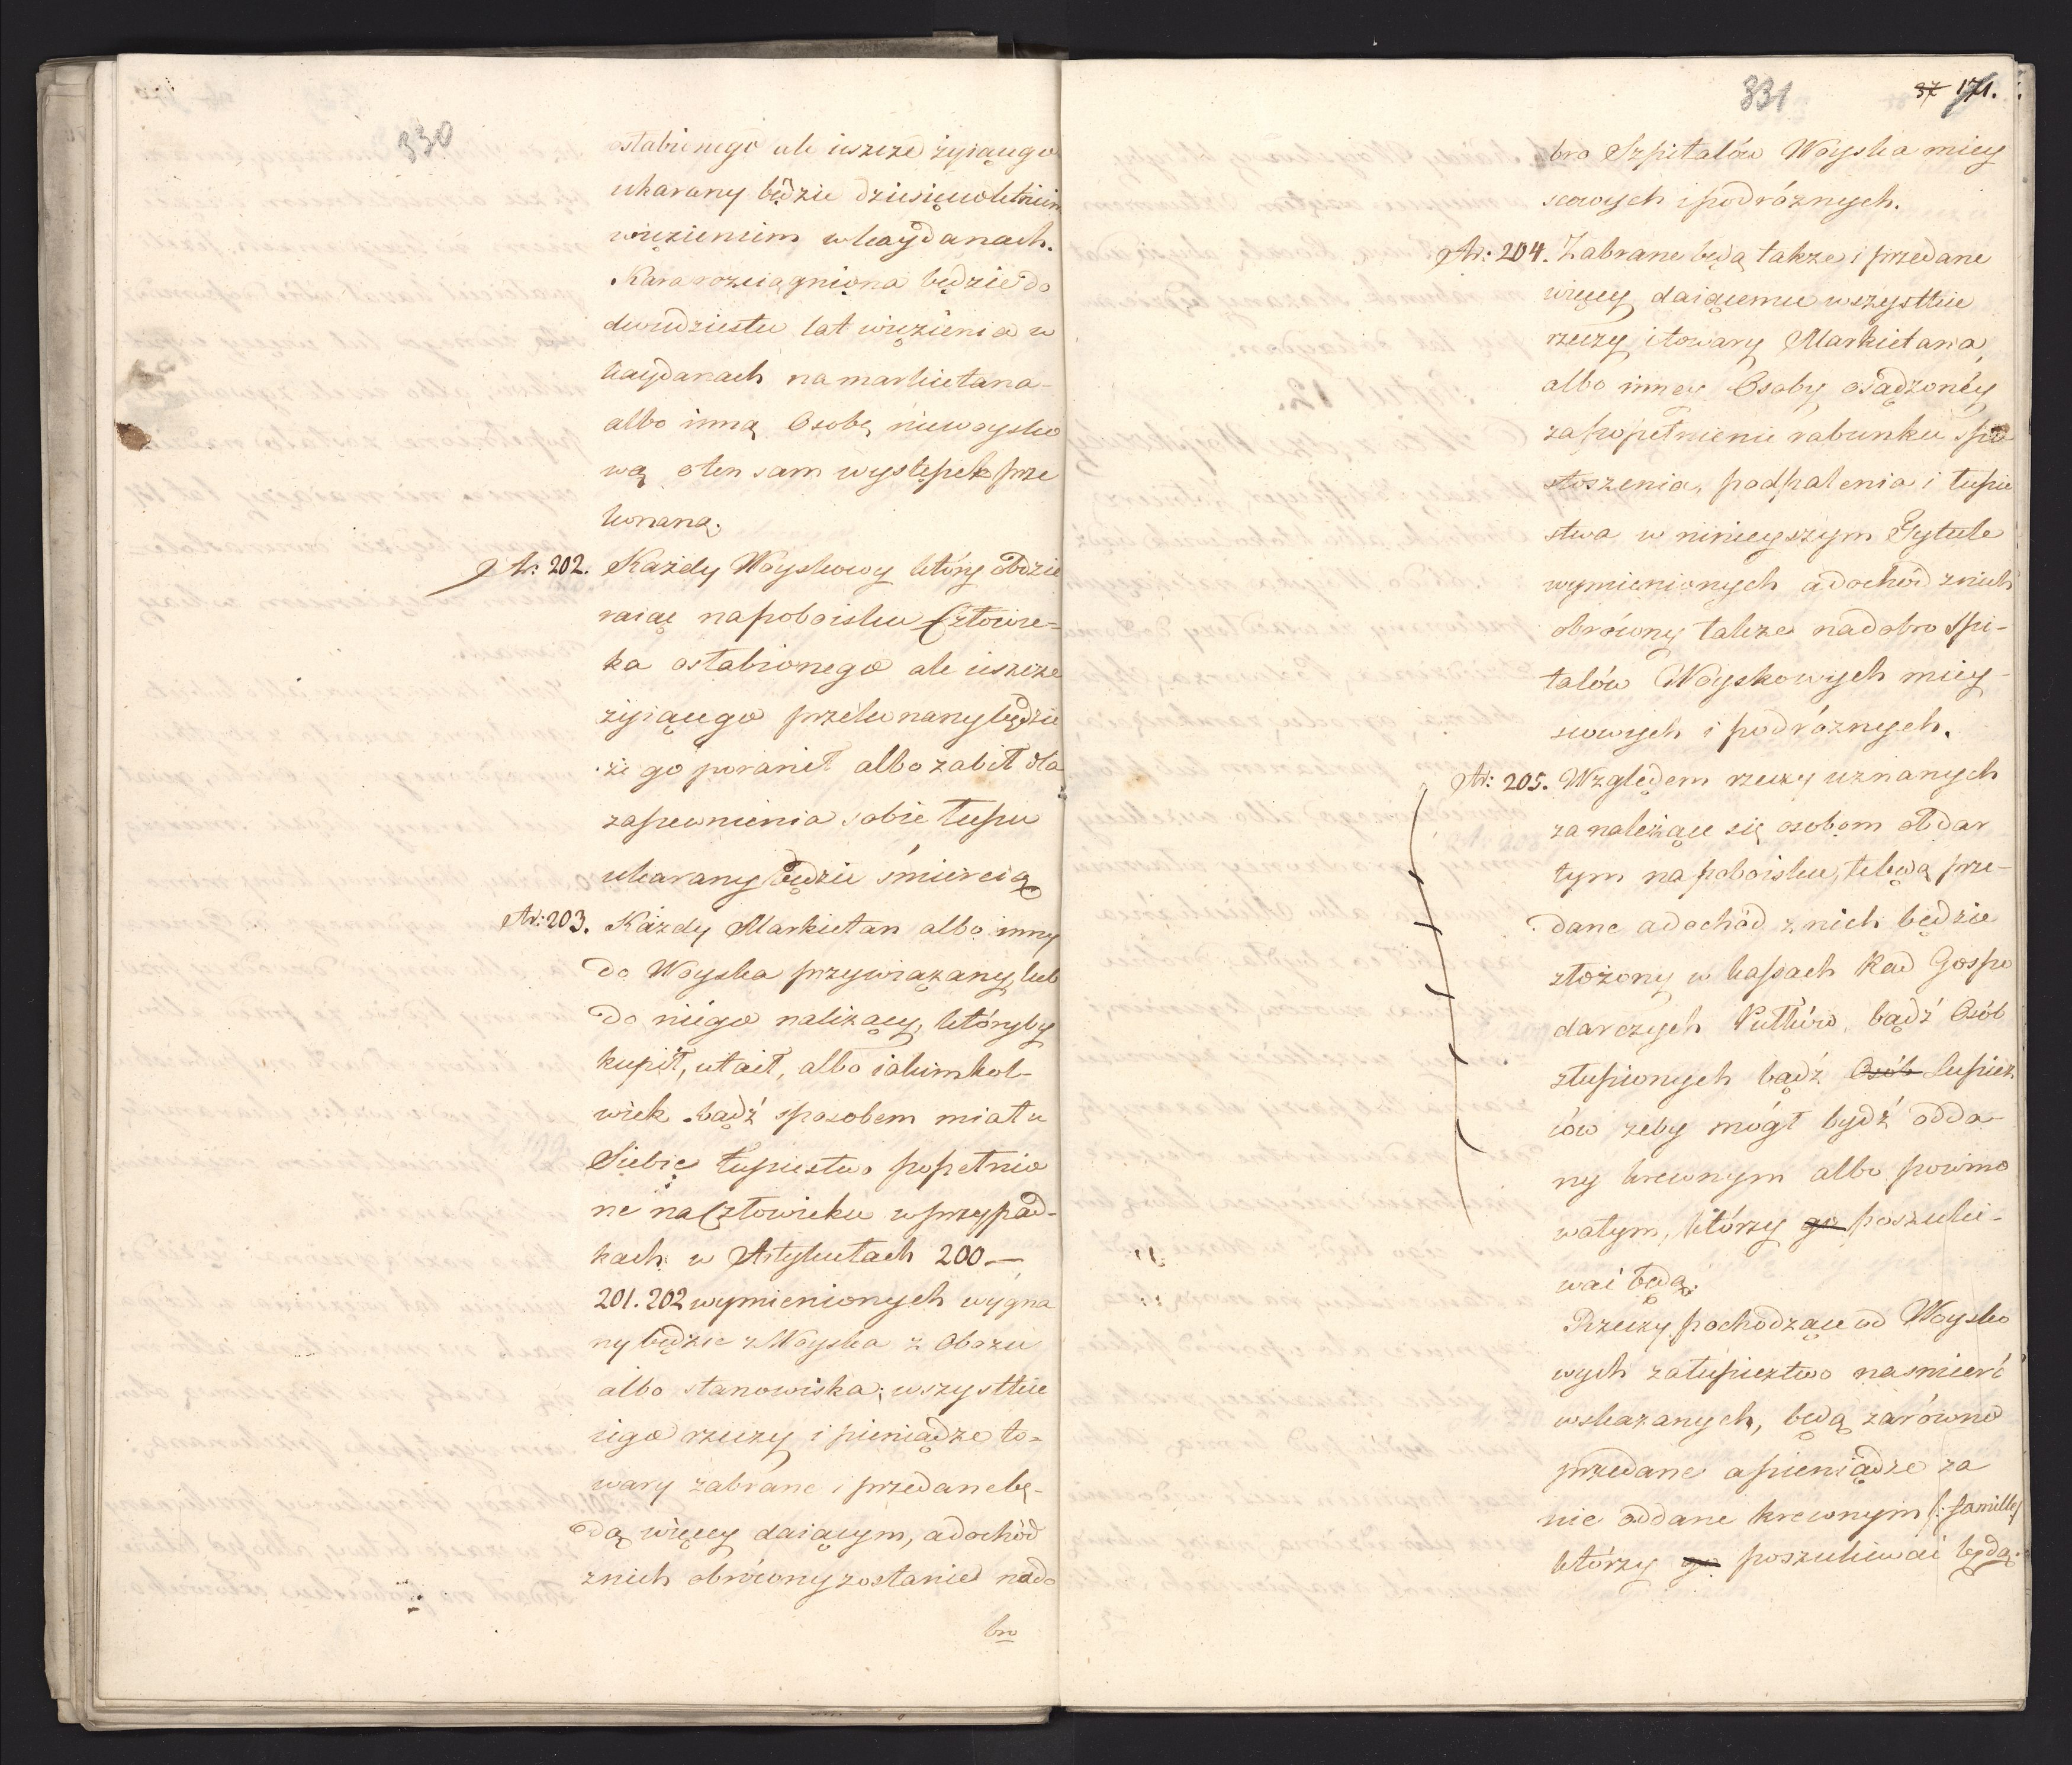 330
osłabionego ale ieszcze żyiącego
ukarany będzie dziesięcioletniem
więzieniem w kaydanach.
Kara rozciągniona będzie do
dwudziestu lat więzienia w
kaydanach na markietana
albo inną Osobę niewoysko
wą o ten sam występek prze
konaną.
Ar: 202. Każdy Woyskowy który obdzie
raiąc na poboisku Człowie-
ka osłabionego ale ieszcze
żyiącego przekonany będzie
że go poranił albo zabił dla
zapewnienia sobie łupu
ukarany będzie śmiercią
Ar: 203. Każdy Markietan albo inny
do Woyska przywiązany, lub
do niego należący, któryby
kupił, utaił, albo iakimkol-
wiek bądź sposobem miał u
Siebie łupiestwo popełnio
ne na Człowieku w przypad-
kach w Artykułach 200.—
201. 202 wymienionych wygna
ny będzie z Woyska z Obozu
albo stanowiska; wszystkie
iego rzeczy i pieniądze to-
wary zabrane i przedane bę-
dą więcey daiącym, a dochód
z nich obrócony zostanie na do
bro
331
37 171.
bro Szpitalów Woyska miey
scowych i podróżnych.
Ar: 204. Zabrane będą także i przedane
więcey daiącemu wszystkie
rzeczy i towary Markietana,
albo inney Osoby osądzoney
za popełnienie rabunku spu
stoszenia, podpalenia i łupie
stwa w ninieyszym Tytule
wymienionych a dochód z nich
obrócony także na dobro Szpi-
talów Woyskowych miey-
scowych i podróżnych.
Ar: 205. Względem rzeczy uznanych
za należące się osobom obdar
tym na poboisku, te będą prze-
dane a dochód z nich będzie
złożony w kassach Rad Gospo
darczych Pułków, bądź Osób
złupionych bądź Osób Łupież
ców żeby mógł bydź odda-
ny krewnym albo powino
watym, którzy go poszuki-
wać będą.
Rzeczy pochodzące od Woysko
wych za łupieztwo na smierć
wskazanych, będą zarówno
przedane a pieniądze za
nie oddane krewnym (: famille)
którzy go poszukiwać będą.